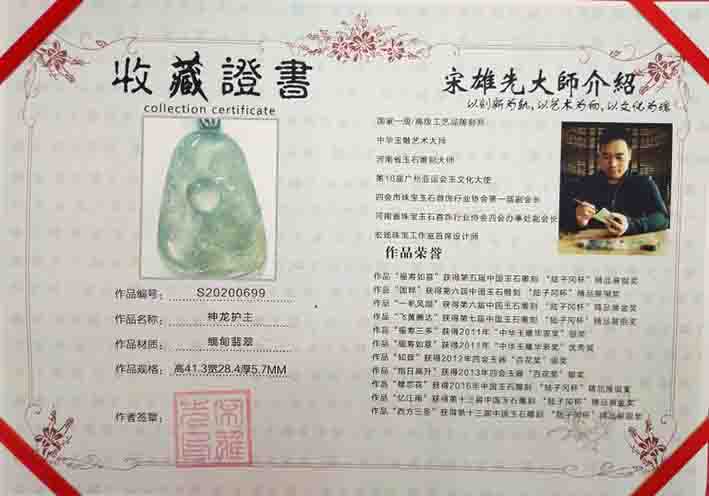 收藏證書
collection certificate
作品编号：S20200699
作品名称：神龙护主
作品材质：缅甸翡翠
作品规格：高41.3宽28.4厚5.7MM
作者签章：
宋雄先大師介紹
以创新为轨，以艺术为物，以文化为魂
国家一级/高级工艺品雕刻师
中华玉雕艺术大师
河南省玉石雕刻大师
第16届广州亚运会玉文化大使
四会市珠宝玉石首饰行业协会第一届副会长
河南省珠宝玉石首饰行业协会四会办事处副会长
珠宝工作室首席设计师
作品荣誉
作品“福寿如意”获得第五届中国玉石雕刻 “陆子冈杯”精品展银奖
作品“国粹”获得第六届中国玉石雕刻 “陆子冈杯”精品展铜奖
作品“一帆风顺”获得第六届中国玉石雕刻 “陆子冈杯”精品展金奖
作品“飞黄腾达”获得第七届中国玉石雕刻 “陆子冈杯”精品展银奖
作品“福寿三多”获得2011年“中华玉雕华猴奖”银奖
作品“福寿如意”获得2011年“中华玉雕华猴奖”优秀奖
作品“知音”获得2012年四会玉器“百花奖”银奖
作品“指日高升”获得2013年四会玉器“百花奖”银奖
作品“雄恋花”获得2016年中国玉石雕刻 “陆子冈杯”精品展银奖
作品“忆江南”获得第十三届中国玉石雕刻 “陆子冈杯”精品展金奖
作品“西方三圣”获得第十三届中国玉石雕刻 “陆子冈杯”精品展银奖